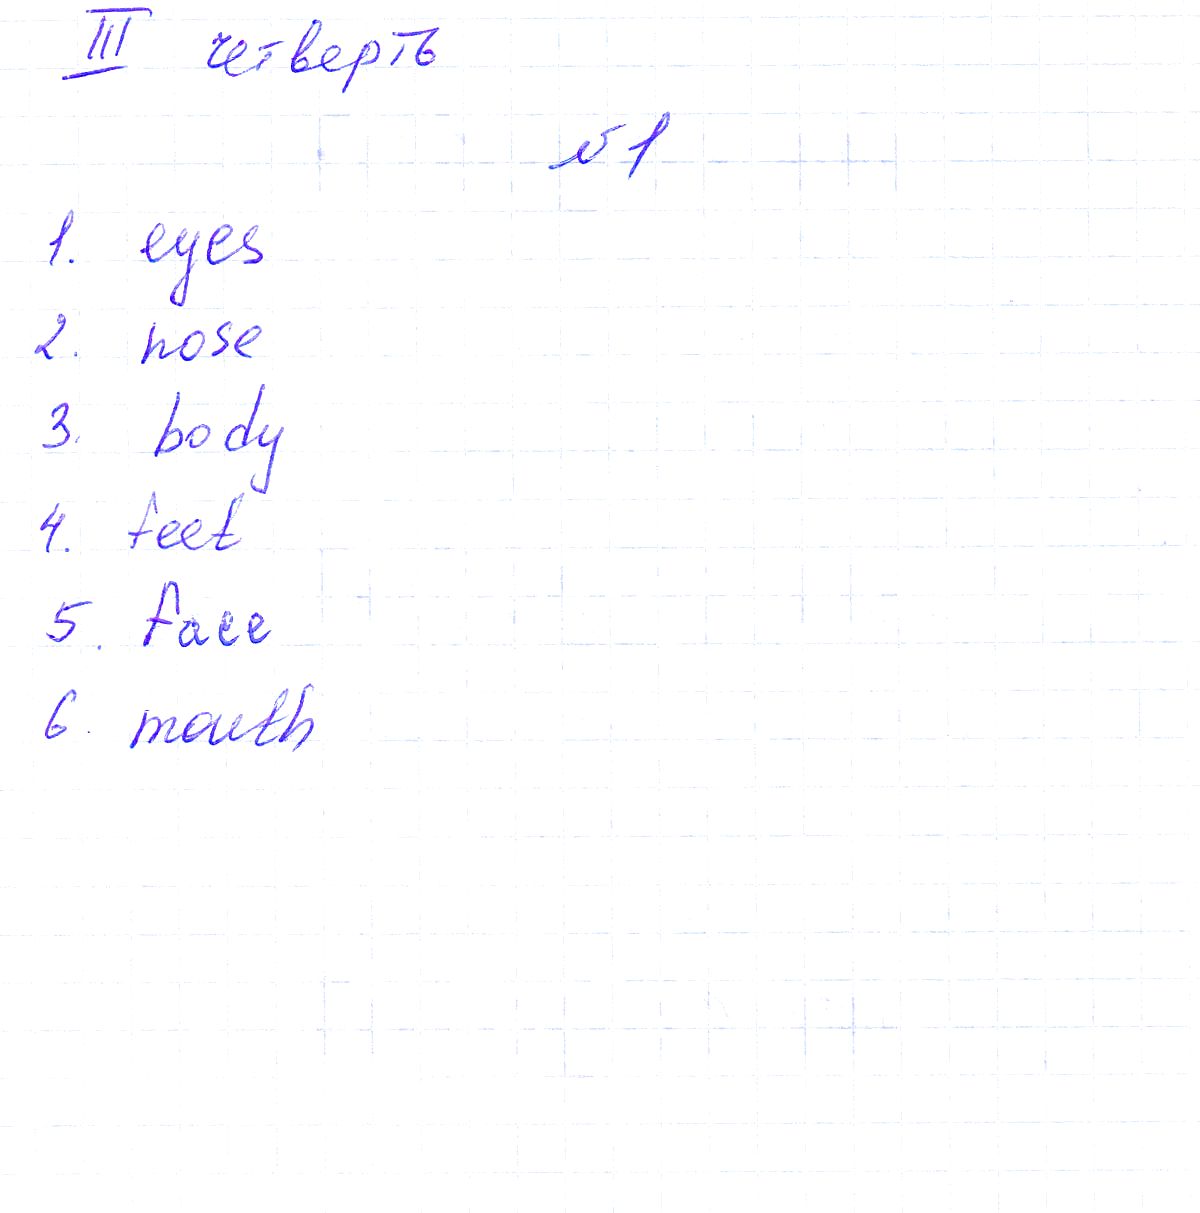 III четверть
№1
1. eyes
2. nose
3. body
4. feet
5. face
6. mouth